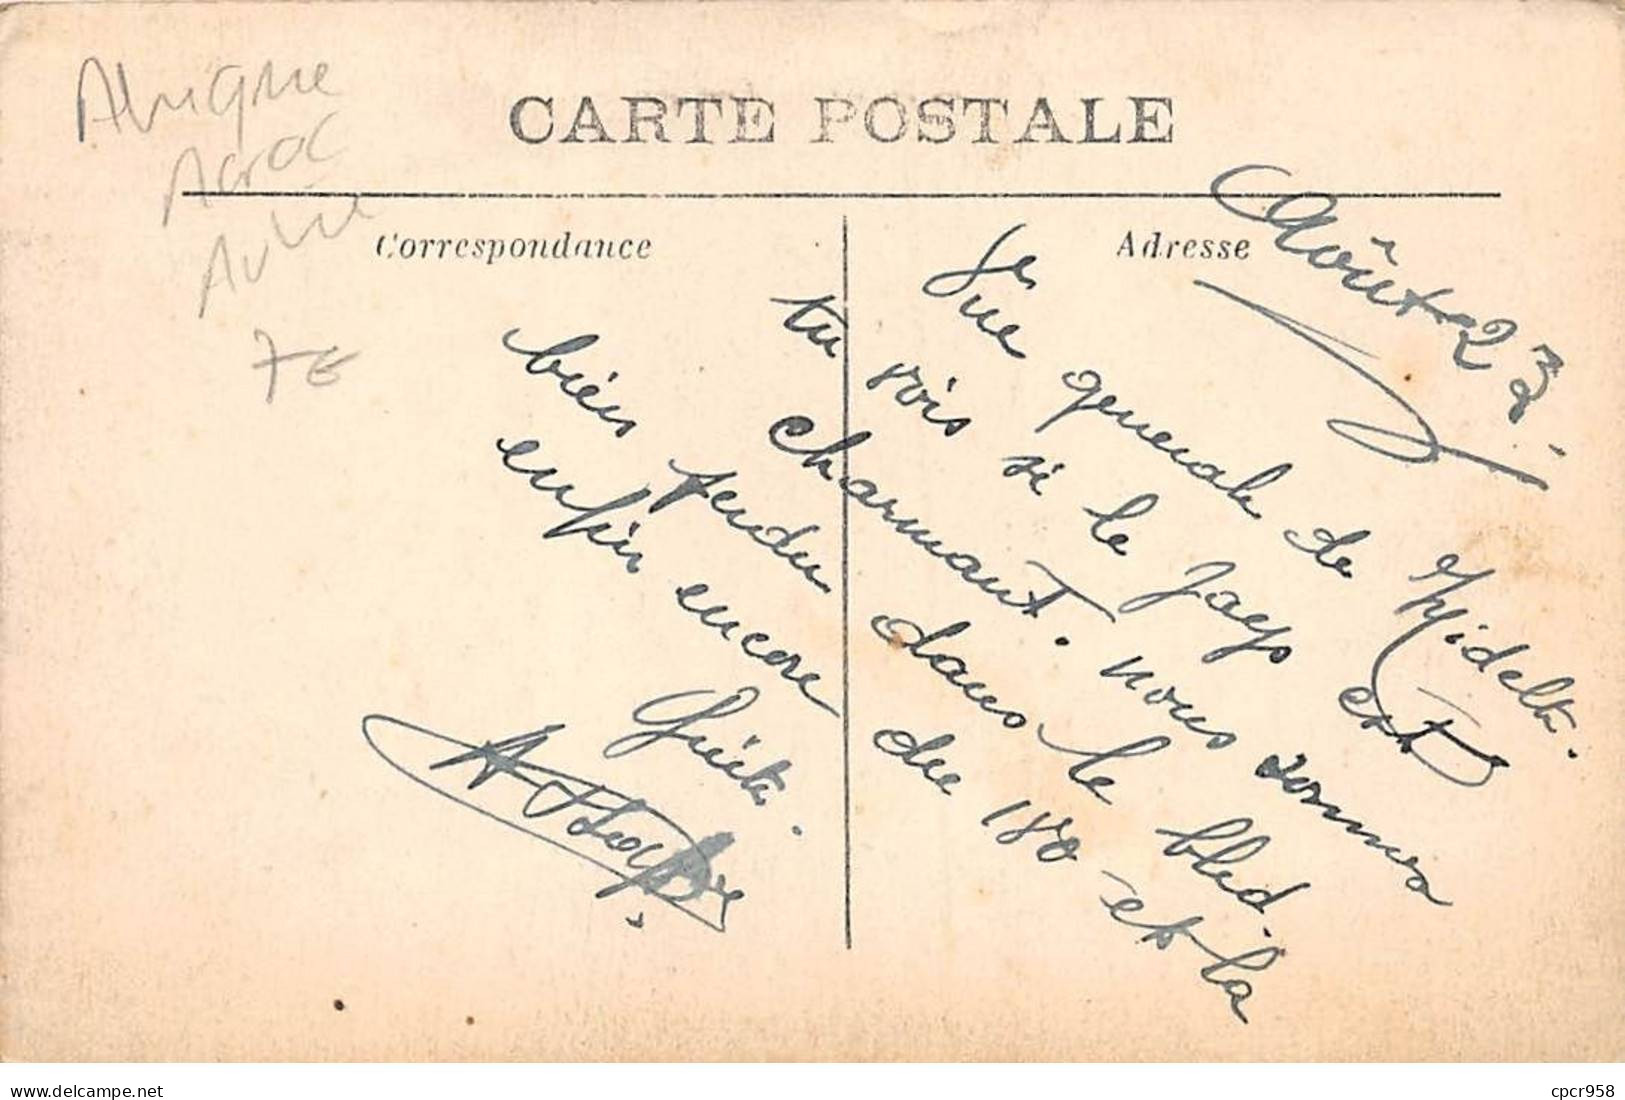 Afrique
Maroc
7€
CARTE POSTALE
Correspondance
Adresse
Août 23.
Vue generale de Midelt.
tu vois si le pays est
charmant. nous sommes
bien perdu dans le bled.
enfin encore du 180 et la
quite.
cpcr958